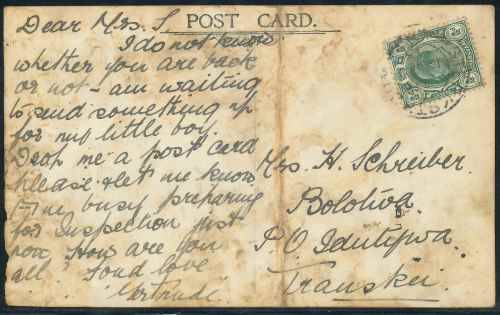 POST CARD.
Dear Mrs. S
I do not know
whether you are back
or not - am waiting
to send something up
for my little boy.
Drop me a post card
please & let me know
I'm busy preparing
for Inspection just
now. How are you
all? Fond love
Gertrude.
Mrs. H. Schreiber.
Bolotwa.
P.O. Idutywa.
Transkei.